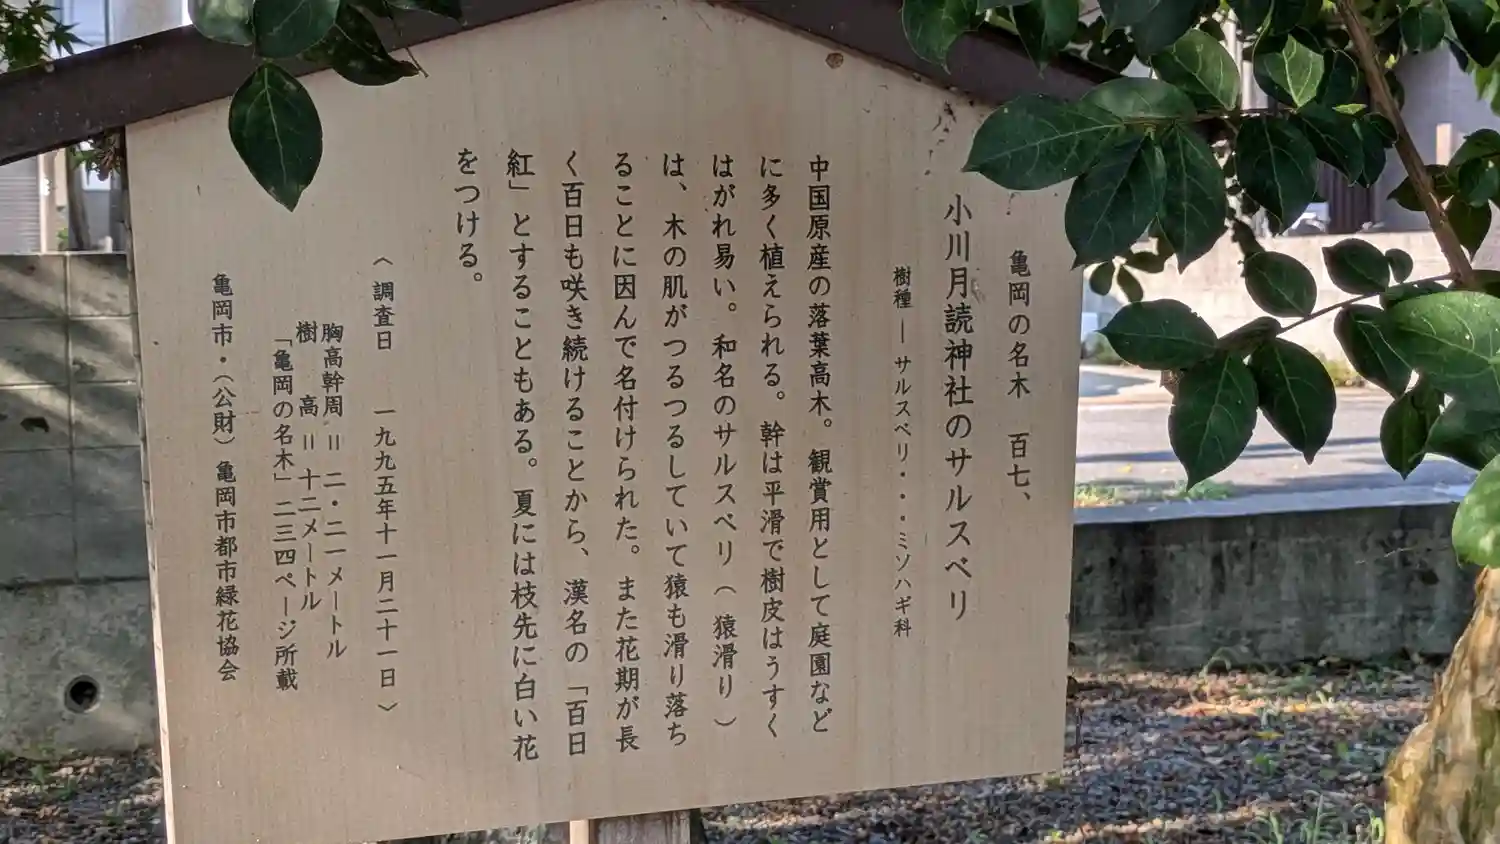 亀岡の名木　百七、
小川月読神社のサルスベリ
樹種 ― サルスベリ・・・ミソハギ科
中国原産の落葉高木。観賞用として庭園など
に多く植えられる。幹は平滑で樹皮はうすく
はがれ易い。和名のサルスベリ（猿滑り）
は、木の肌がつるつるしていて猿も滑り落ち
ることに因んで名付けられた。また花期が長
く百日も咲き続けることから、漢名の「百日
紅」とすることもある。夏には枝先に白い花
をつける。
〈調査日　一九九五年十一月二十一日〉
胸高幹周 ＝ 二・二一メートル
樹　高 ＝ 十二メートル
「亀岡の名木」二三四ページ所載
亀岡市・（公財）亀岡市都市緑花協会